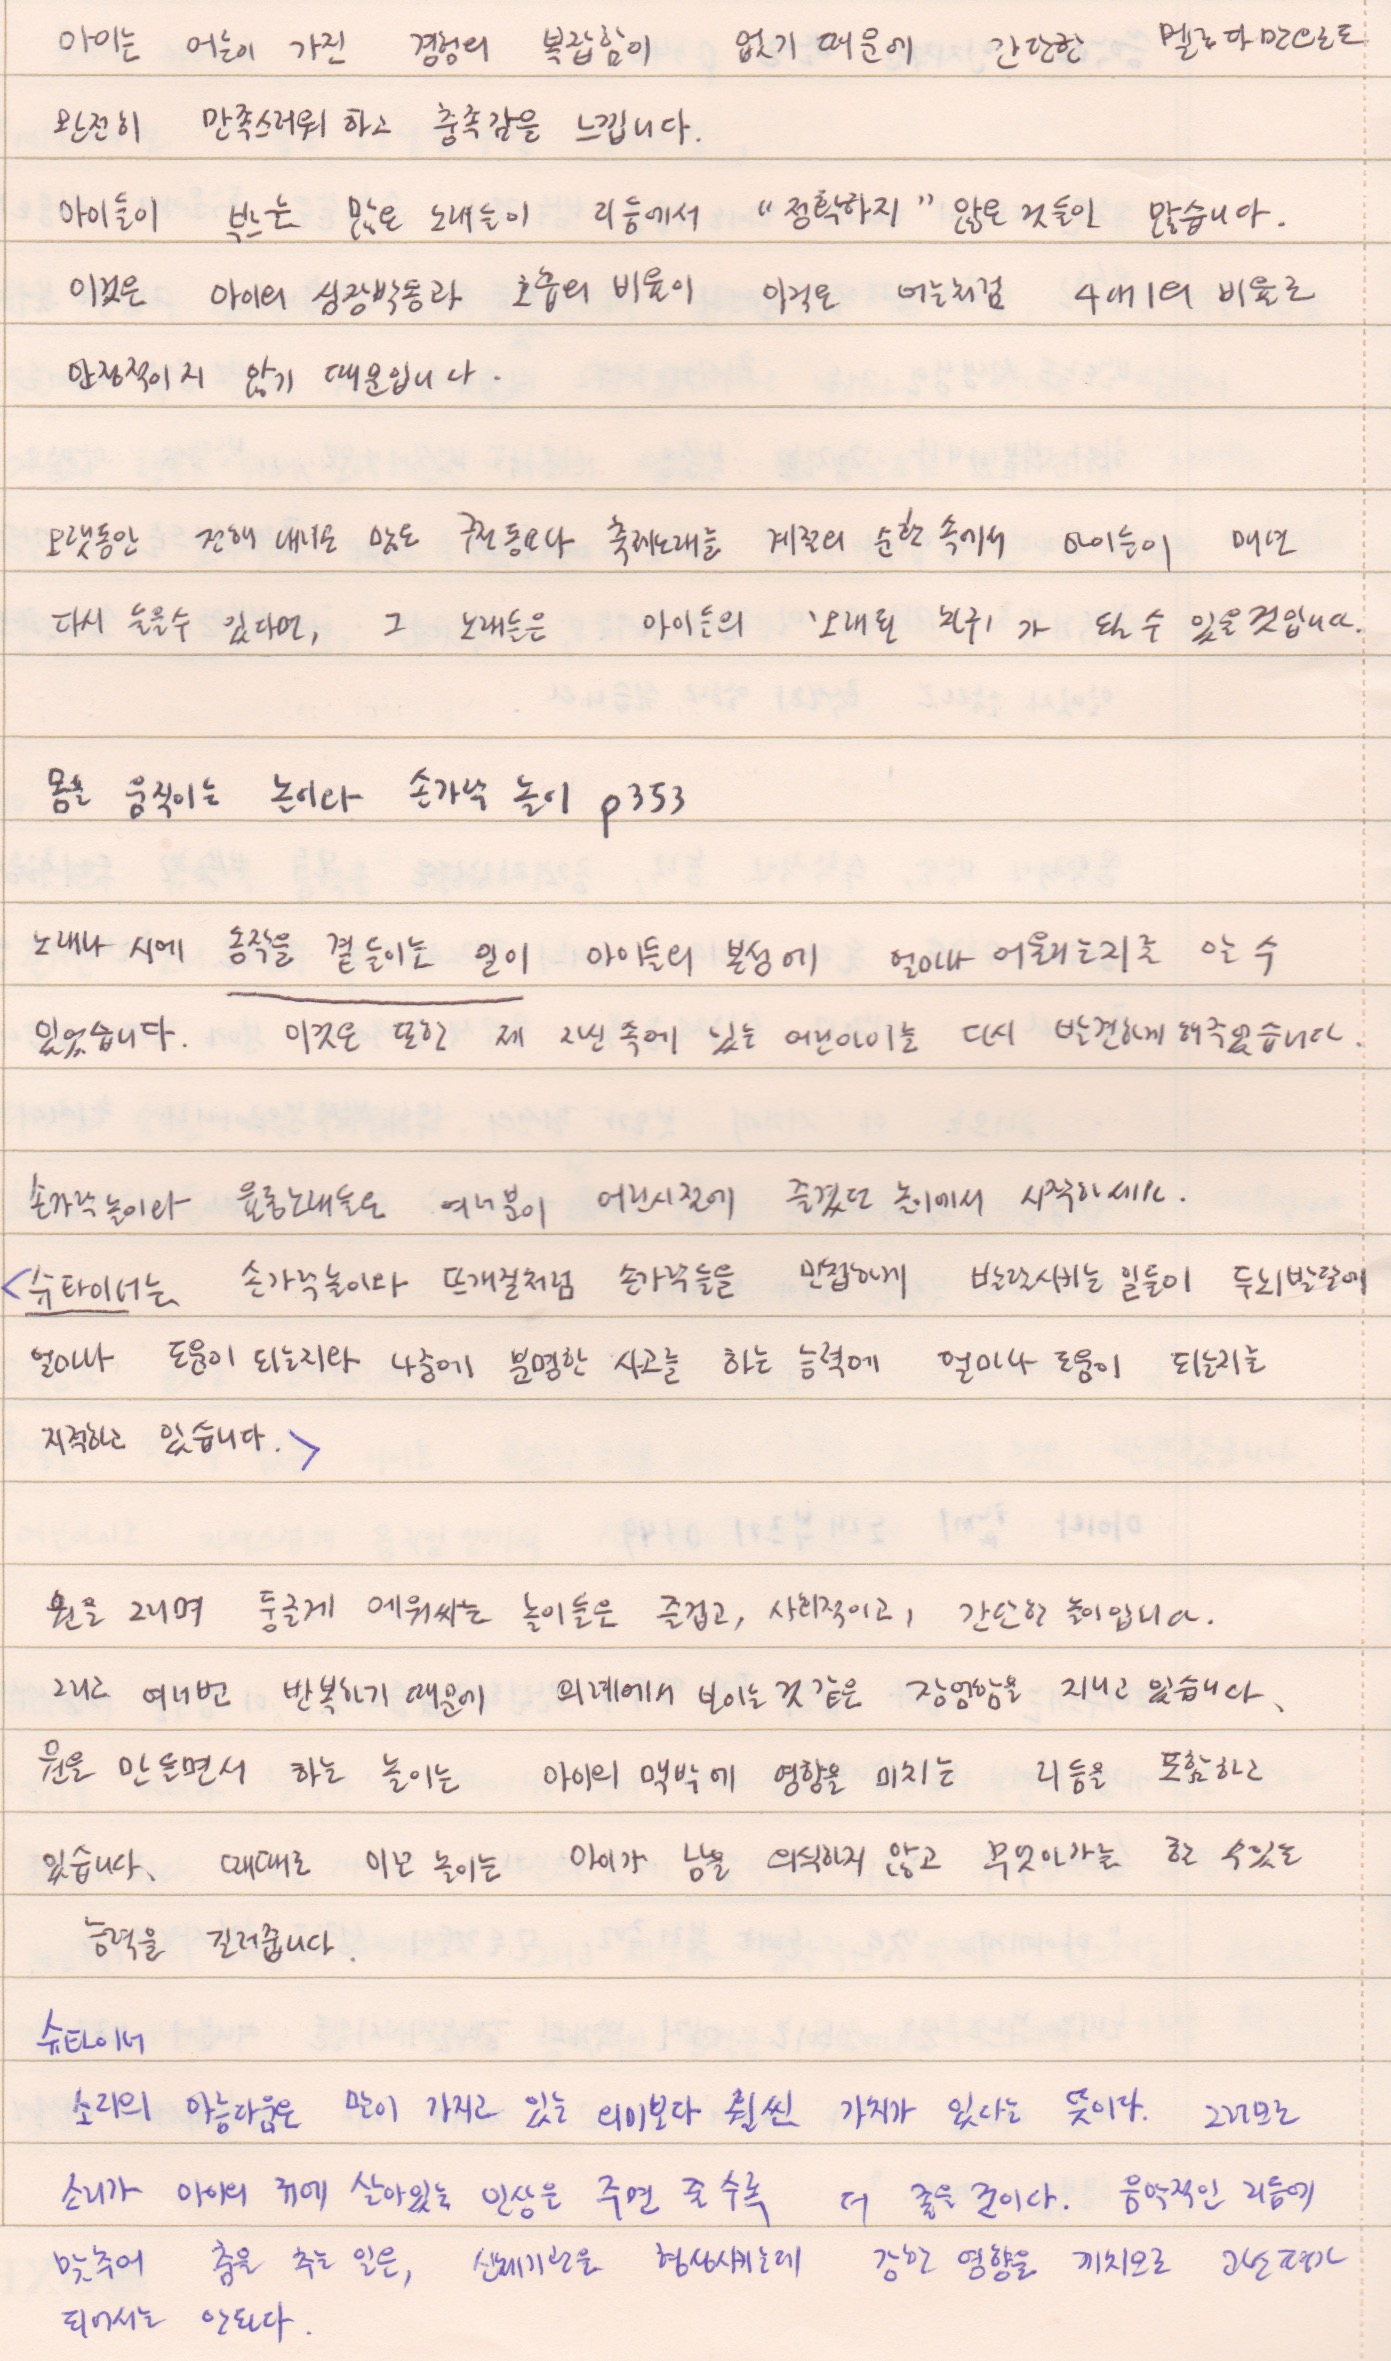 아이는 어른이 가진 경험의 복잡함이 없기 때문에 간단한 멜로디만으로도
완전히 만족스러워 하고 충족감을 느낍니다.
아이들이 부르는 많은 노래들이 리듬에서 "정확하지" 않은 것들이 많습니다.
이것은 아이의 심장박동과 호흡의 비율이 아직은 어른처럼 4대1의 비율로
안정적이지 않기 때문입니다.
오랫동안 전해 내려온 많은 구전동요나 축제노래를 계절의 순환 속에서 아이들이 매년
다시 들을수 있다면, 그 노래들은 아이들의 '오래된 친구'가 될 수 있을것입니다.
몸을 움직이는 놀이와 손가락 놀이 p353
노래나 시에 동작을 곁들이는 일이 아이들의 본성에 얼마나 어울리는지를 알 수
있었습니다. 이것은 또한 제 자신 속에 있는 어린아이를 다시 발견하게 해주었습니다.
손가락놀이와 율동노래들은 여러분이 어린시절에 즐겼던 놀이에서 시작하세요.
<슈타이너는 손가락놀이와 뜨개질처럼 손가락들을 민첩하게 발달시키는 일들이 두뇌발달에
얼마나 도움이 되는지와 나중에 분명한 사고를 하는 능력에 얼마나 도움이 되는지를
지적하고 있습니다.>
원을 그리며 둥글게 에워싸는 놀이들은 즐겁고, 사회적이고, 간단한 놀이입니다.
그리고 여러번 반복하기 때문에 의례에서 보이는 것 같은 장엄함을 지니고 있습니다.
원을 만들면서 하는 놀이는 아이의 맥박에 영향을 미치는 리듬을 포함하고
있습니다. 때때로 이런 놀이는 아이가 남을 의식하지 않고 무엇인가를 할 수있는
능력을 길러줍니다.
슈타이너
소리의 아름다움은 말이 가지고 있는 의미보다 훨씬 가치가 있다는 뜻이다. 그러므로
소리가 아이의 귀에 살아있는 인상을 주면 줄수록 더 좋을 것이다. 음악적인 리듬에
맞추어 춤을 추는 일은, 신체기관을 형성시키는데 강한 영향을 끼치므로 과소평가
되어서는 안된다.